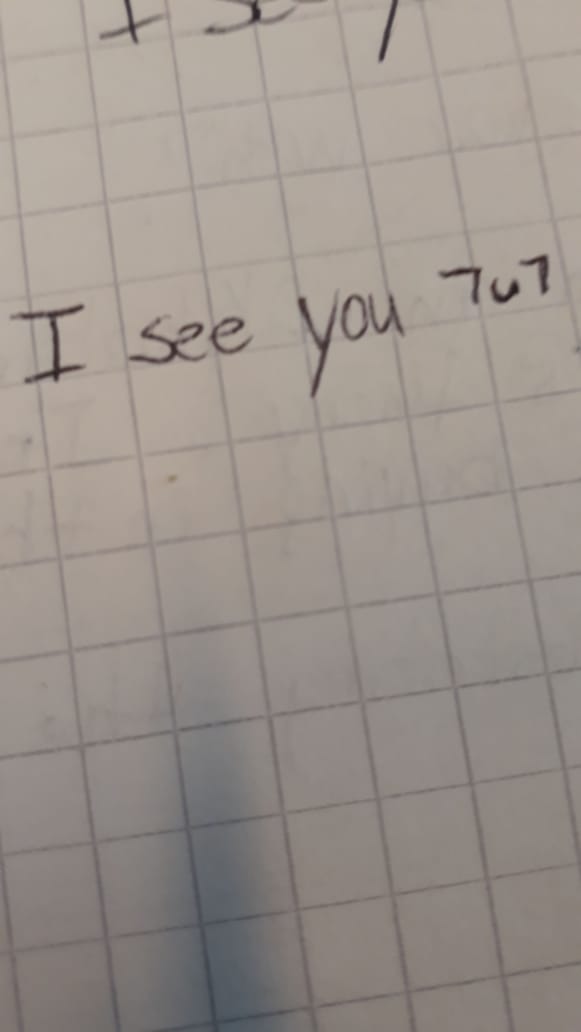 I see you ¬u¬